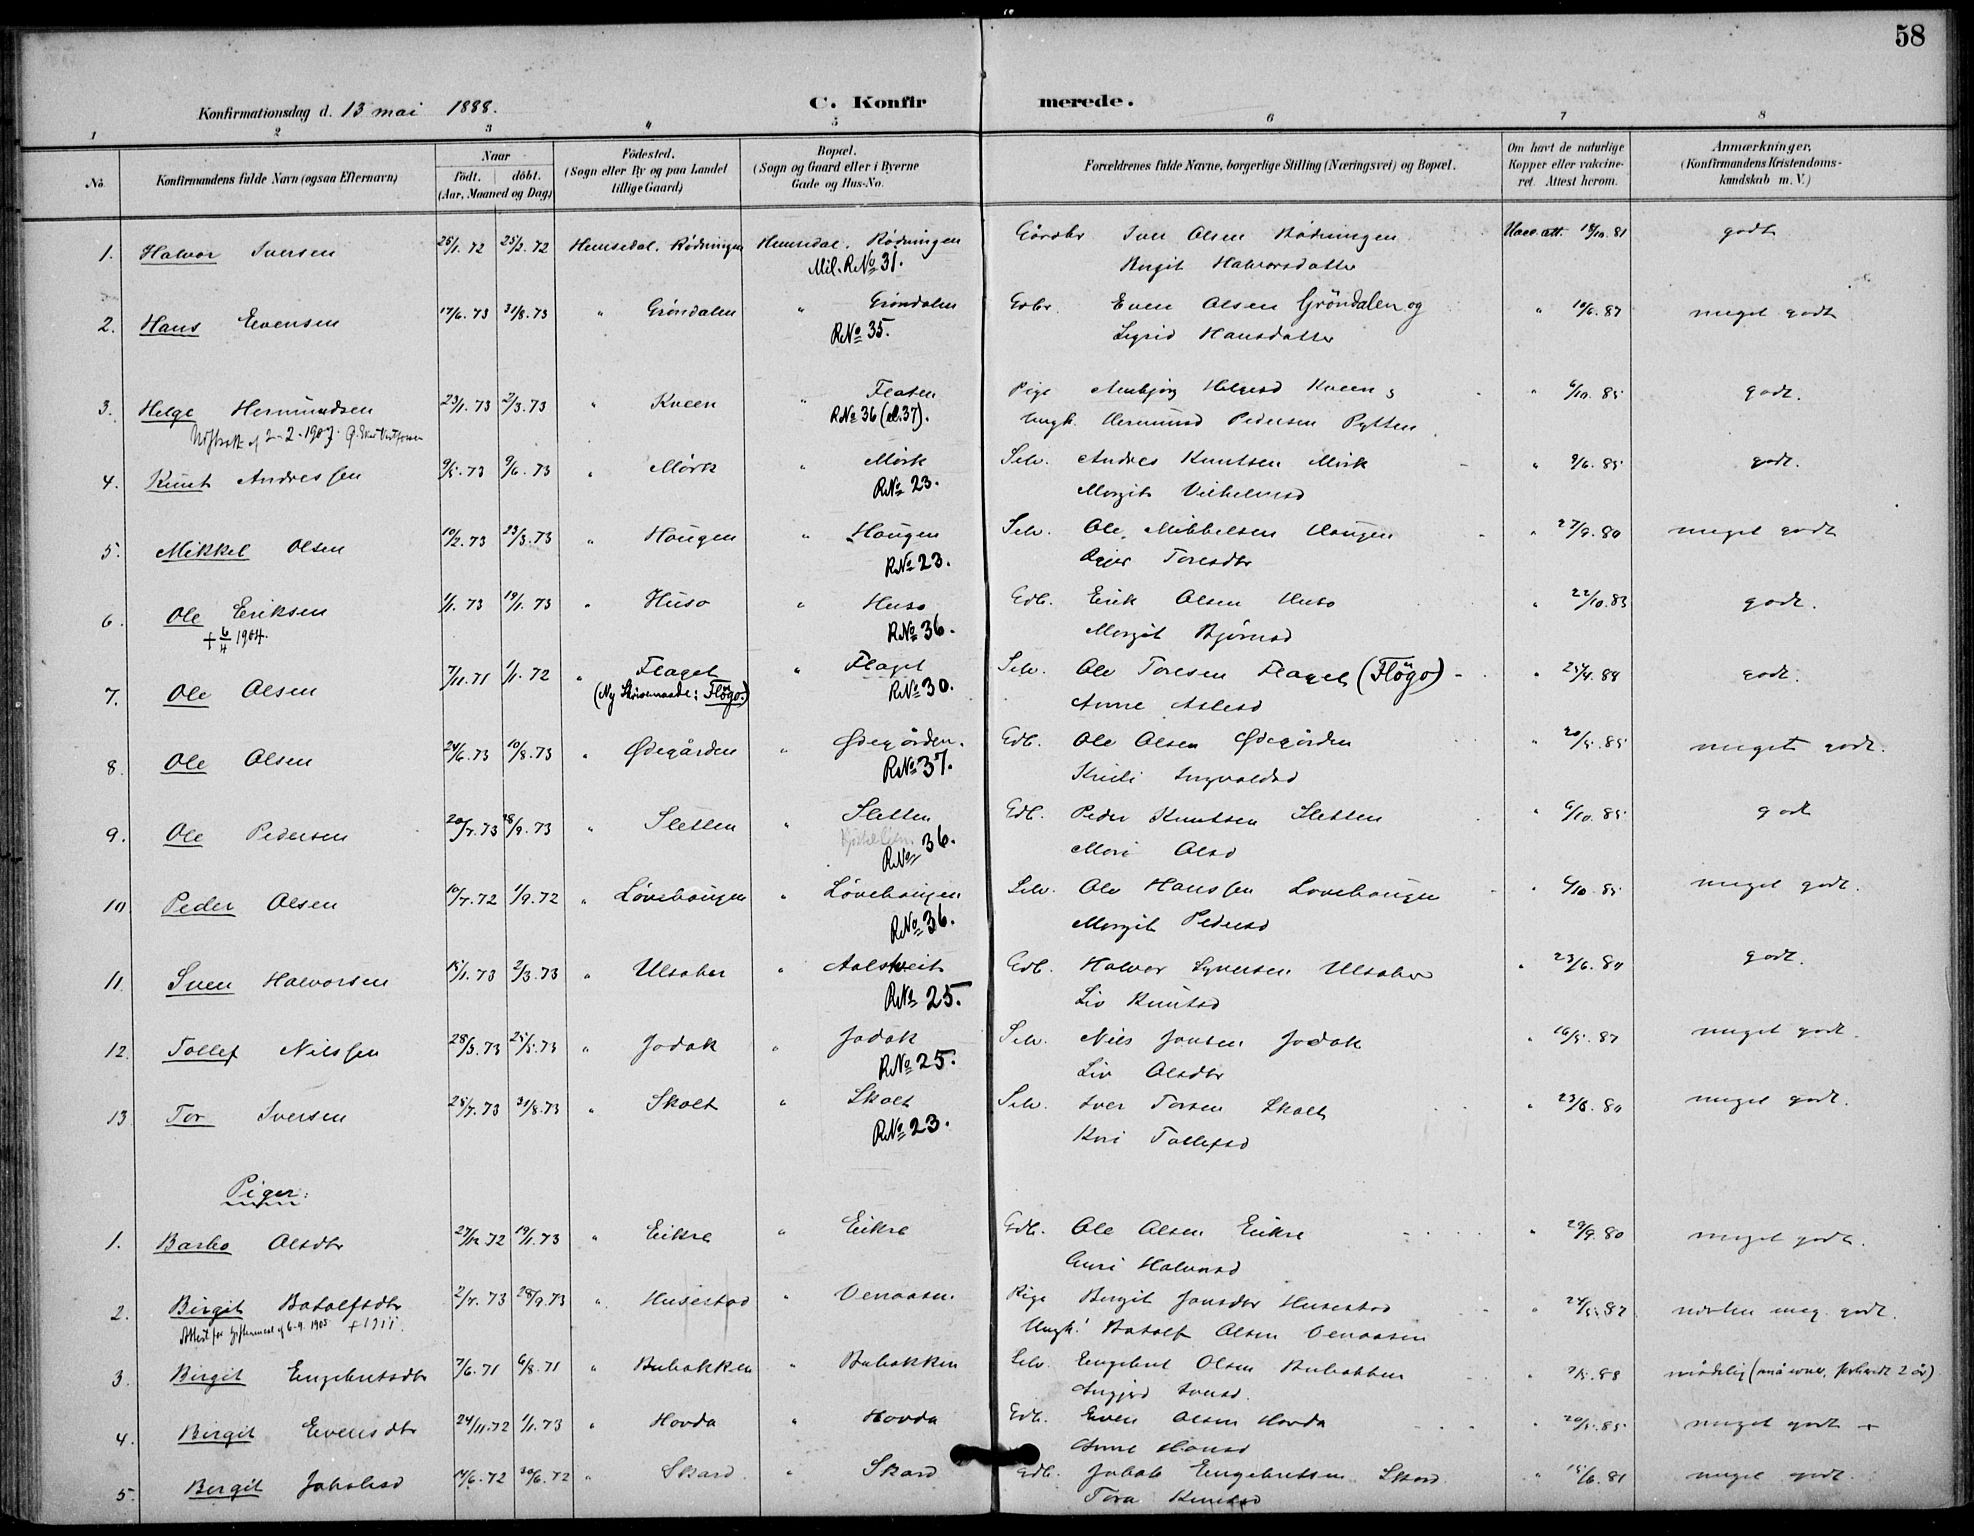 58
Konfirmationsdag d. 13 mai 1888. C. Konfirmerede.
1 2 3 4 5 6 7 8
No. Konfirmandens fulde Navn (ogsaa Efternavn) Naar født. døbt. (Aar, Maaned og Dag) Fødested. (Sogn eller By og paa Landet tillige Gaard) Bopæl. (Sogn og Gaard eller i Byerne Gade og Hus-No. Forældrenes fulde Navne, borgerlige Stilling (Næringsvei) og Bopæl. Om havt de naturlige Kopper eller vakcineret. Attest herom. Anmærkninger, (Konfirmandens Kristendomskundskab m. V.)
1. Halvor Iversen 25/1. 72 25/2. 72 Hemsedal. Rødningen Hemsedal. Rødningen Gårdbr Iver Olsen Rødningen Vacc. att. 18/10. 81 godt
Mil. R.No 31. Birgit Halvorsdatter
2. Hans Evensen 17/6. 73 31/8. 73 " Grøndalen " Grøndalen Gdbr. Even Olsen Gröndalen og " 10/6. 87 meget godt
R.No 35. Sigrid Hansdatter
3. Helge Hermundsen 23/1. 73 2/3. 73 " Kveen " Flaten Pige Ambjørg Helgesd Kveen " 6/10. 85 godt.
R.No 36 (al. 37). Ungk. Hermund Pedersen Rytten
4. Knut Andressen 9/5. 73 9/6. 73 " Mörk " Mörk Selv. Andres Knutsen Mörk " 9/6. 85 godt.
R.No 23. Margit Vilhelmsd
5. Mikkel Olsen 10/2. 73 23/3. 73 " Haugen " Haugen Selv. Ole Mikkelsen Haugen " 27/9. 80 meget godt
R.No 23. Toresdtr
6. Ole Eriksen 1/1. 73 19/1. 73 " Huso " Huso Gdb. Erik Olsen Huso " 22/10. 83 godt.
+ 6/4 1904. R.No 36. Margit Bjørnsd
7. Ole Olsen 7/11. 71 1/1. 72 " Flaget " Flaget Selv. Ole Toresen Flaget (Flögo) " 25/4. 88 godt.
(Ny Skrivemaade: Flögo.) R.No 30. Anne Aslesd
8. Ole Olsen 24/6. 73 10/8. 73 " Ødegården " Ødegården. Gdb. Ole Olsen Ødegården " 20/5. 85 meget godt.
R.No 37. Ingvaldsd
9. Ole Pedersen 20/7. 73 28/9. 73 " Sletten " Sletten Gdb. Peder Knutsen Sletten " 6/10. 85 godt
R.No 36. Mari Olsd
10 Peder Olsen 10/7. 72 1/9. 72 " Løvehaugen " Løvehaugen Selv. Ole Hanssen Løvehaugen " 6/10. 85 meget godt.
R.No 36. Margit Pedersd
11. Sven Halvorsen 15/1. 73 2/3. 73 " Ulsaker " Aalstveit Gdb. Halvor Syversen Ulsaker " 23/6. 80 godt.
R.No 25. Liv Knutsd
12. Tollef Nilssen 28/3. 73 25/5. 73 " Jodak " Jodak Selv. Nils Jonsen Jodak " 16/5. 87 meget godt.
R.No 25. Liv Olsdtr
13 Tor Iversen 25/7. 73 31/8. 73 " Skolt " Skolt Selv. Iver Torsen Skolt " 23/6. 80 meget godt.
R.No 23. Kari Tollefsd
Piger:
1. Barbo Olsdtr 27/12 72 19/1. 73 " Eikre " Eikre Gdb. Ole Olsen Eikre " 29/9. 80 meget godt.
Guri Halvorsd
2. Birgit Botolfsdtr 2/7. 73 28/9. 73 " Husestad " Venaasen Pige Birgit Jonsdtr Husestad " 24/5. 87 næsten meg. godt.
6-9. 1905. + 1911. Ungk. Botolf Olsen Venaasen
3. Birgit Engebretsdtr 7/6. 71 6/8. 71 " Bubakken " Bubakken Selv. Engebret Olsen Bubakken " 9/5. 88 mådelig (små evner, forberedt 2 år)
4. Birgit Evensdtr 24/11. 72 1/1. 73 " Hovda " Hovda Gdb. Even Olsen Hovda " 20/5. 85 meget godt +
Anne Hansd
5. Birgit Jakobsd 14/6. 72 30/6. 72 " Skard. " Skard Gdb. Jakob Engebretsen Skard. " 15/6. 81 meget godt.
Tora Knutsd